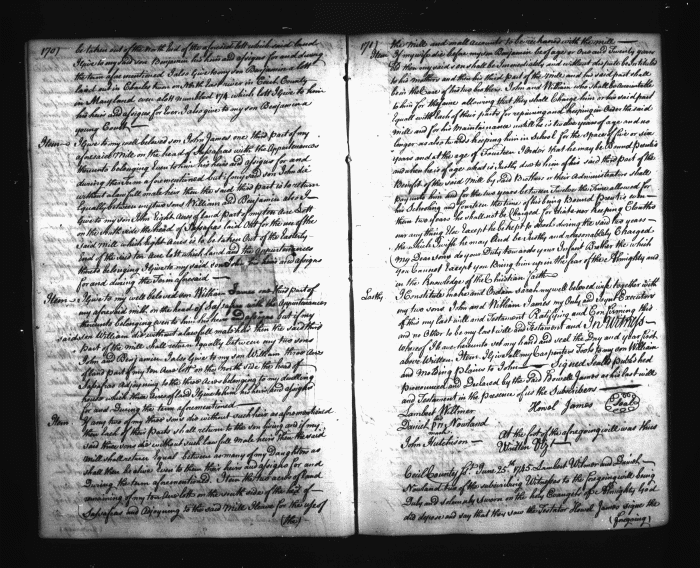 1707
be taken out of the North End of the aforesaid lott which said land
I give to my said son Benjamin his heirs and assigns for and during
the term aforementioned I also give to my son Benjamin a lott
laid out in Charles town on North East river in Cecil County
in Maryland one alott numbred 174 which lott I give to him
his heirs and assigns for Ever I also give to my son Benjamin a
young
Item I give to my well beloved son John James one third part of my
aforesaid Mill on the head of Sassafras with the Appurtenances
thereunto belonging unto him his heirs and assigns for and
during the term aforementioned but if my said son John die
without a lawfull male heir then the said third part is to return
Equally between my two sons William and Benjamin also I
Give to my son John Eight Acres of land part of my ten Acre Lott
on the North side the head of Sassafras laid Out for the use of the
said mill which Eight Acres is to be taken Out of the
end of the said ten Acre Lott which land and the Appurtenances
thereto belonging I give to my said son John his heirs and assigns
for and during the Term aforesaid
Item I give to my well beloved son William James one third part of
my aforesaid mill on the head of Sassafras with the Appurtenances
thereunto belonging unto him his heirs and assigns but if my
said son William die without a lawfull male heir then the said third
part of the mill shall return Equally between my two sons
John and Benjamin I also Give to my son William three Acres
of land part of my ten Acre Lott on the North side the head of
Sassafras adjoyning to the three Acres belonging to my dwelling
house which three Acres of land I give to him his heirs and assigns
for and During the term aforementioned
Item If any two of my three sons die without such heir as aforementioned
then Each of their parts shall return to the son living and if my
said three sons die without such lawfull male heirs then the said
mill shall return Equal between as many of my Daughters as
shall then be alive Even to them their heirs and assigns for and
During the term aforementioned. Item the two acres of land
remaining of my ten Acre Lott on the south side of the head of
Sassafras and Adjoyning to the said Mill I leave for the use of
(the)
1707
the Mill and mall accounts to be reckoned with the mill
Item If my will die before my son Benjamin be of age or One and Twenty years
old then my said son shall be Immediately and without dispute be
to his mothers and then his third part of the mill and his said part shall
be in the Care of his two brothers John and William who shall be accountable
to him for the same allowing that they shall Charge him or his said part
Equall with Each of their parts for repairing and keeping in Order the said
Mill and for his Maintainance untill he is twelve years of age and no
longer as also to aid keeping him in School for the space of five or six
years and at the age of Fourteen I Order that he may be Bound Prentice
and when he is of age what is Justly due to him of his said third part of the
Benefit of the said Mill by said Brothers or their Administrators shall
pay unto him and for the two years between Twelve the Times allowed for
his Schooling and Fourteen the time of his being Bound Prentice
them two years he shall not be Charged for
nor any thing Else Except he be kept to Schools during the said two years
the which I wish he may And be Justly and reasonably Charged
My Dear sons do your Duty towards your Infant Brother the which
you Cannot Except you Bring him up in the fear of the Almighty and
in the Knowledge of the Christian Faith
Lastly I Constitute make and Ordain Sarah my well beloved wife together with
my two sons John and William James my Only and Joynt Executors
of this my last will and Testament Ratifying and Confirming this
and no Other to be my last will and Testament and In Witness
whereof I have hereunto set my hand and seal the Day and year first
above Written. Item. I give all my Carpenters Tools to my son William
and Molding Plains to John Signed Sealed published
pronounced and Declared by the said Howell James as his last will
and Testament in the presence of us the Subscribers
Lambert Willmer Howel James Seal
Darich Nowland
John Hutcheson At the foot of the aforegoing will was thus
Written Viz
Cecil County Ss June 25th 1745 Lambert Wilmer and Darich
Nowland two of the subscribing Witnesses to the foregoing will being
Duly and solemnly sworn on the holy Evangels of Almighty God
did depose and say that they saw the Testator Howel James sign the
(foregoing)